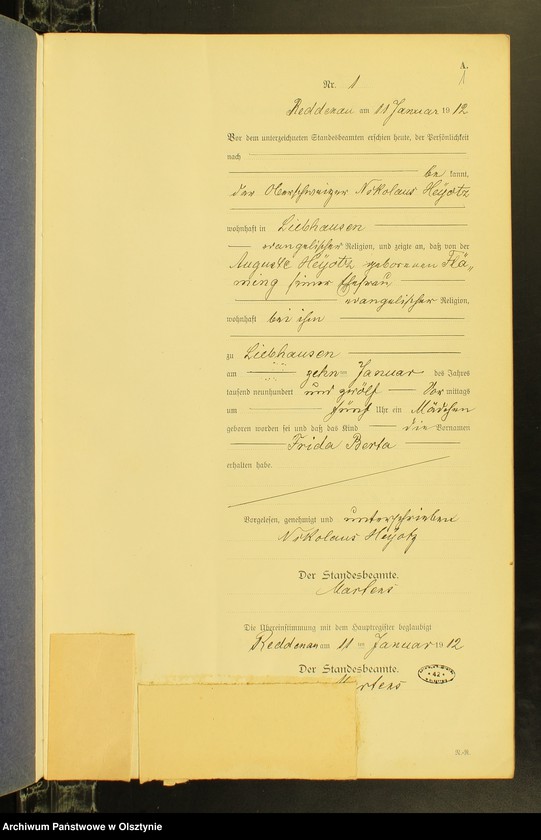 A.
1
Nr. 1
Reddenau am 11 Januar 1912
Vor dem unterzeichneten Standesbeamten erschien heute, der Persönlichkeit
nach
be kannt,
der Oberschweizer Nikolaus Heyotz
wohnhaft in Liebhausen
evangelischer Religion, und zeigte an, daß von der
Auguste Heyotz geborenen Flä„
ming seiner Ehefrau
evangelischer Religion,
wohnhaft bei ihm
zu Liebhausen
am zehn ten Januar des Jahres
tausend neunhundert und zwölf Vor mittags
um fünf Uhr ein Mädchen
geboren worden sei und daß das Kind die Vornamen
Frida Berta
erhalten habe.
Vorgelesen, genehmigt und unterschrieben
Nikolaus Heyotz
Der Standesbeamte.
Martens
Die Übereinstimmung mit dem Hauptregister beglaubigt
Reddenau am 11 ten Januar 1912
Der Standesbeamte.
Martens
42
Archiwum Państwowe w Olsztynie